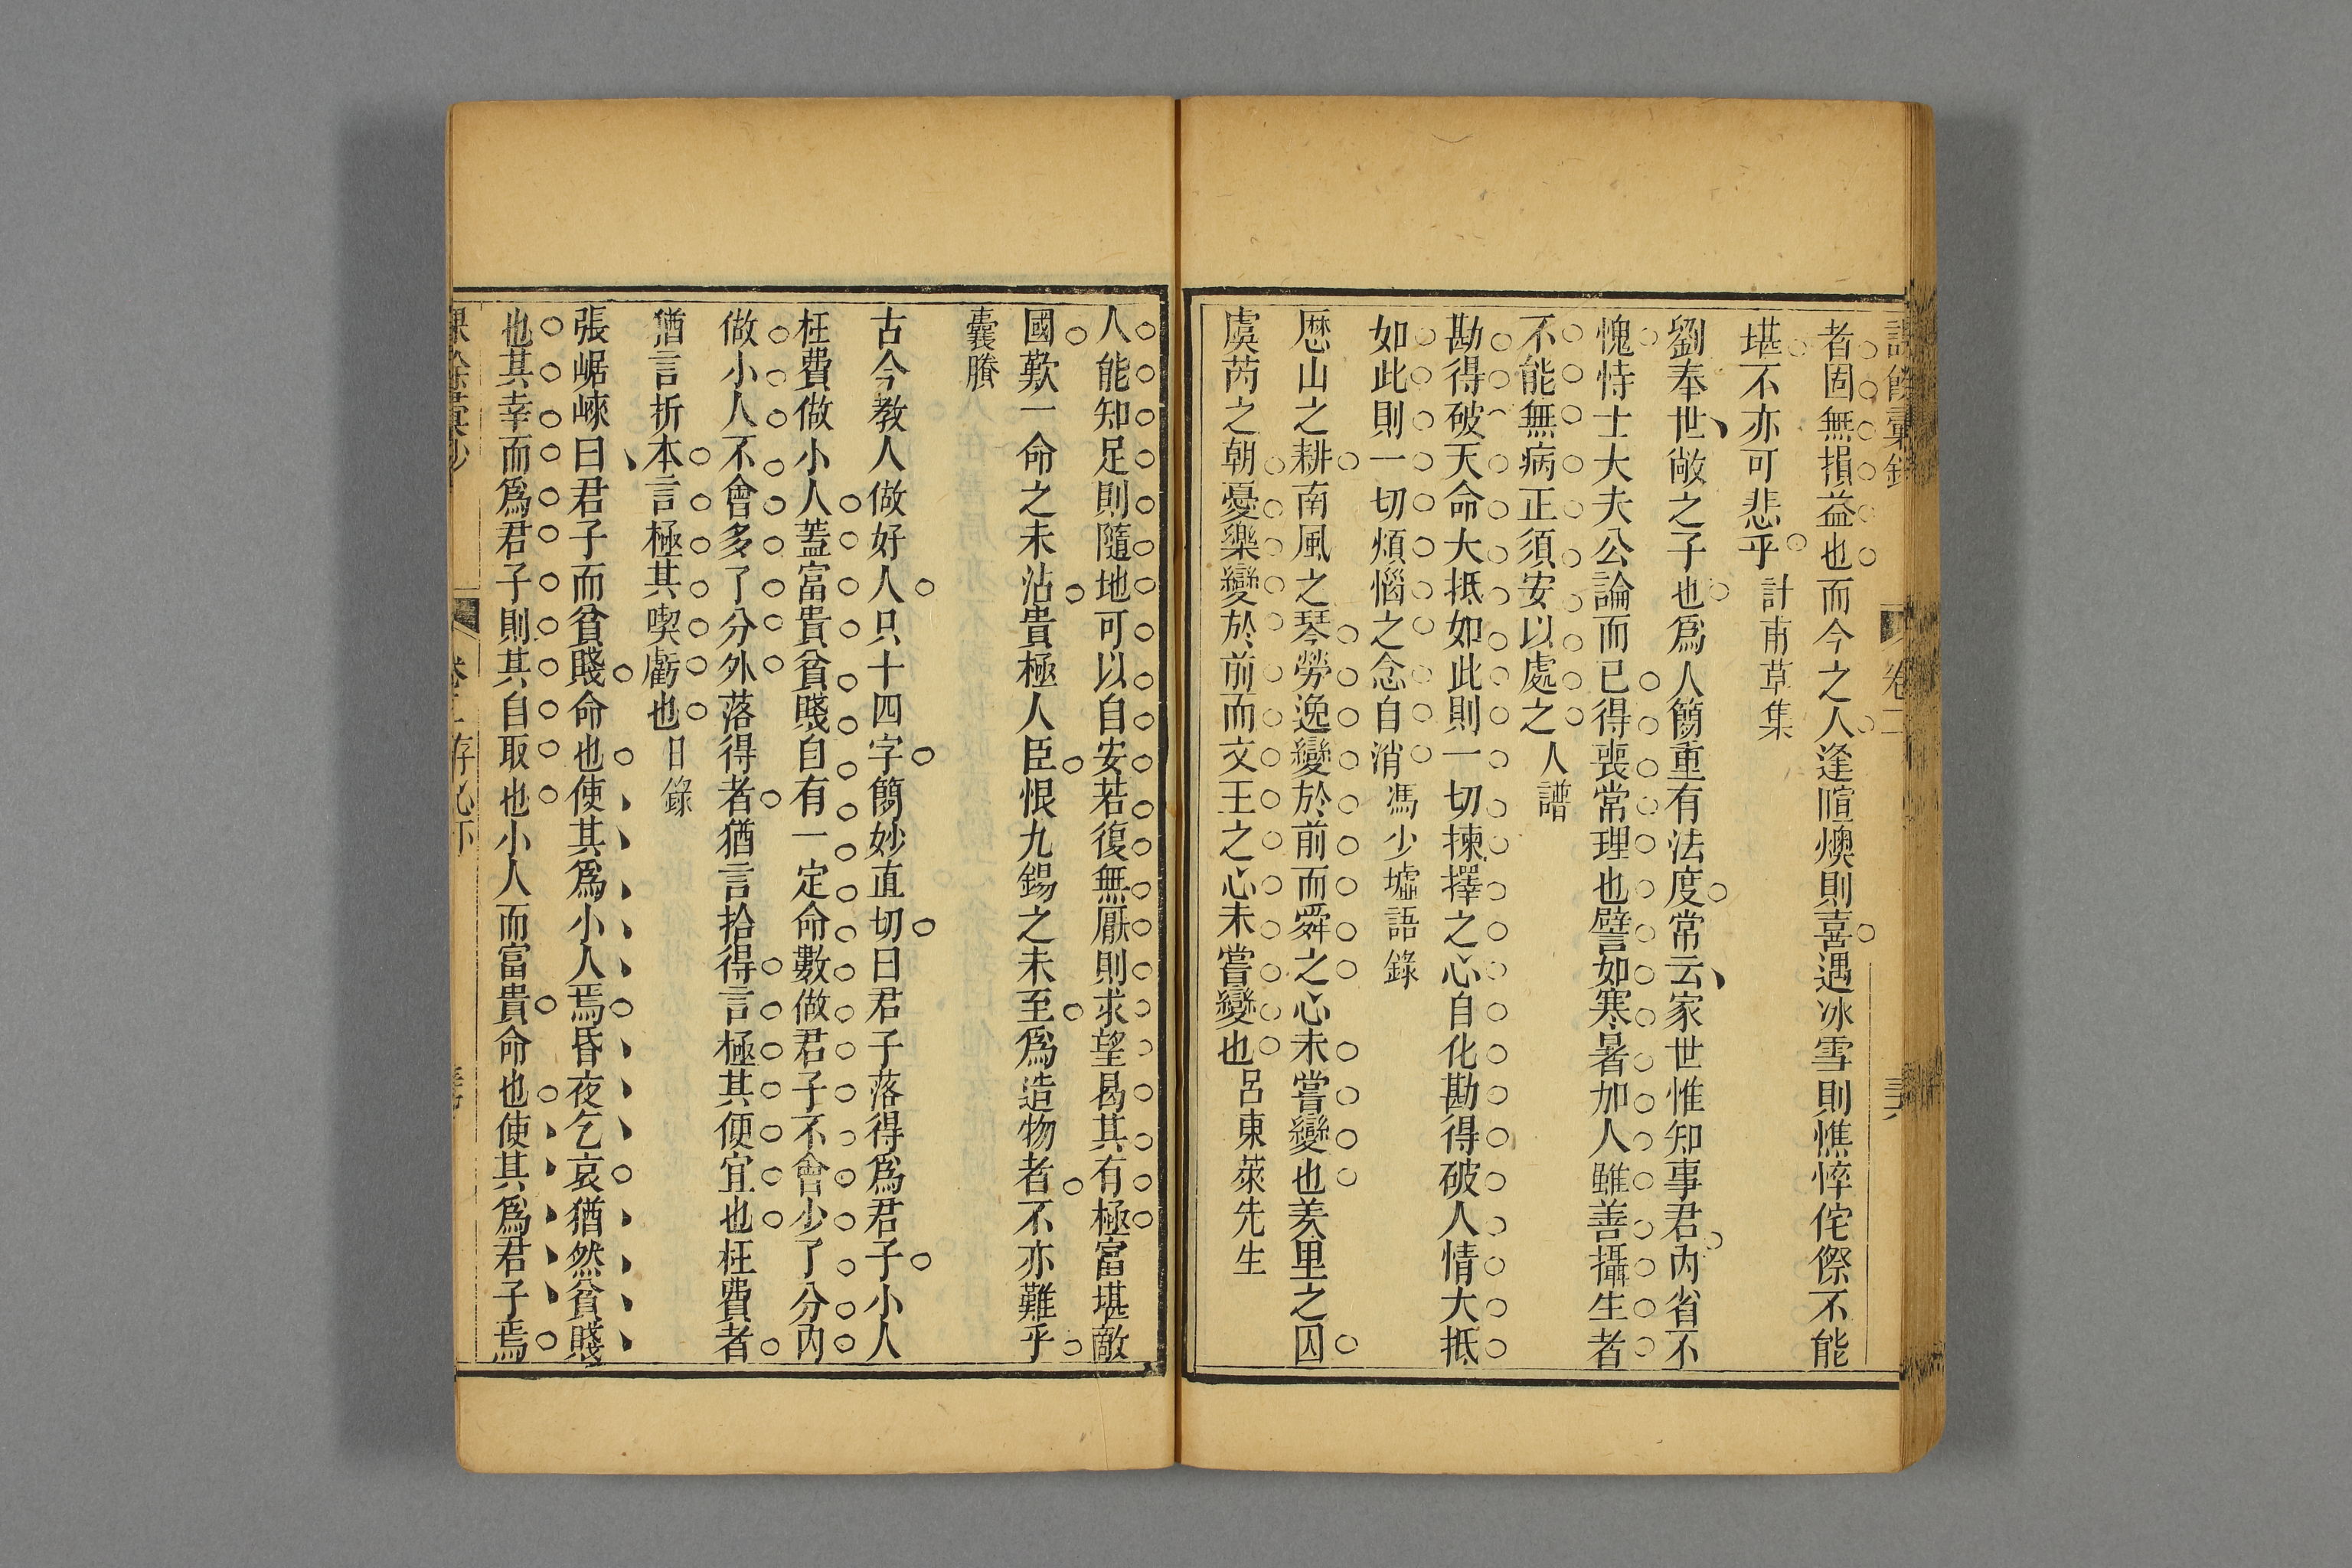 卷二
者固無損益也而今之人逢暄燠則喜遇冰雪則憔悴侘傺不能
堪不亦可悲乎 計甫草集
劉奉世敞之子也爲人簡重有法度常云家世惟知事君內省不
愧恃士大夫公論而已得喪常理也譬如寒暑加人雖善攝生者
不能無病正須安以處之 人譜
勘得破天命大抵如此則一切揀擇之心自化勘得破人情大抵
如此則一切煩惱之念自消 馮少墟語錄
歷山之耕南風之琴勞逸變於前而舜之心未嘗變也羑里之囚
虞芮之朝憂樂變於前而文王之心未嘗變也 呂東萊先生
人能知足則隨地可以自安若復無厭則求望曷其有極富堪敵
國歎一命之未沾貴極人臣恨九錫之未至爲造物者不亦難乎
囊螣
古今教人做好人只十四字簡妙直切曰君子落得爲君子小人
枉費做小人蓋富貴貧賤自有一定命數做君子不會少了分內
做小人不會多了分外落得者猶言拾得言極其便宜也枉費者
猶言折本言極其喫虧也 日錄
張崌崍曰君子而貧賤命也使其爲小人焉昏夜乞哀猶然貧賤
也其幸而爲君子則其自取也小人而富貴命也使其爲君子焉